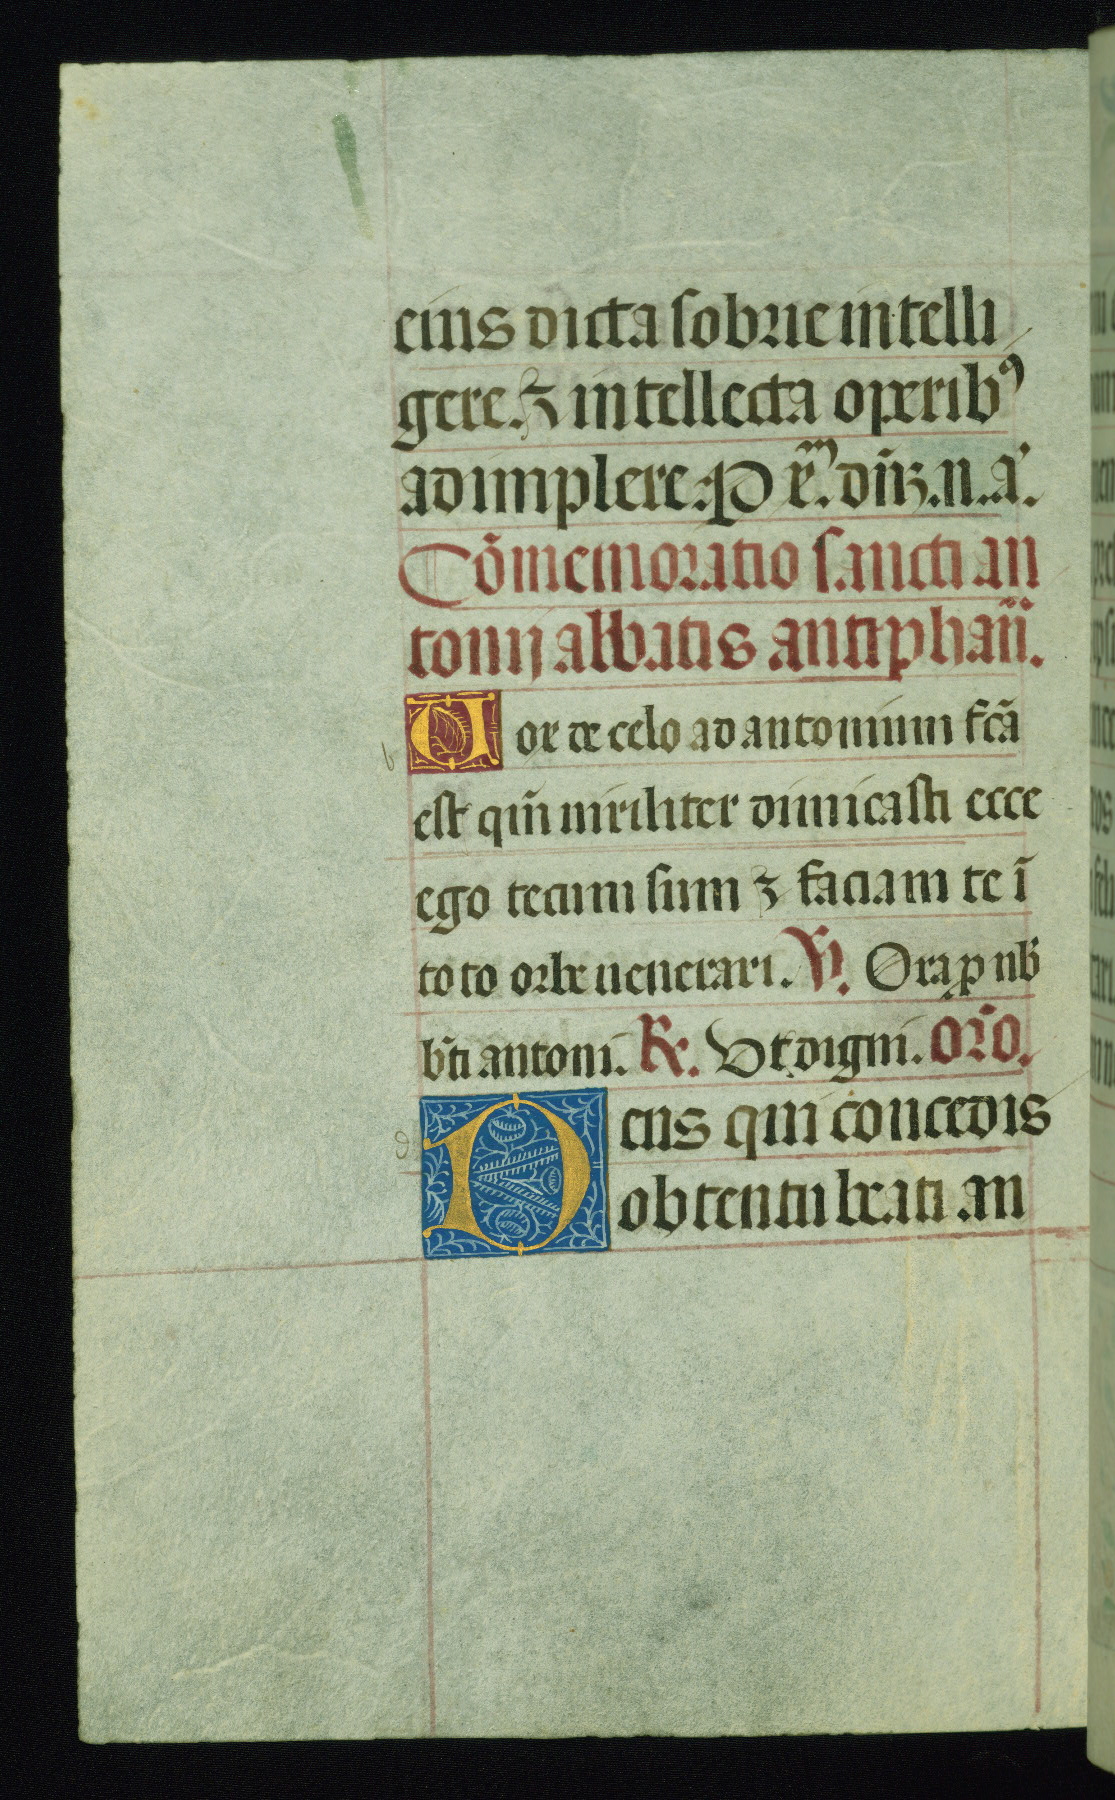 eius dicta sobrie intelli
gere. ⁊ intellecta operibꝰ
adimplere. P xͫ. dñꝫ. n. a͛.
Cõmemoratio sancti an
tonij abbatis antiphañ.
Vox de celo ad antonium fcã
est qm̃ uiriliter dimicasti ecce
ego tecum sum ⁊ faciam te ĩ
toto orbe uenerari. ℣. Ora ꝓ nb̃
bt̃i antoni. ℟. Vt digni. Or̃o.
Deus qui concedis
obtentu beati an